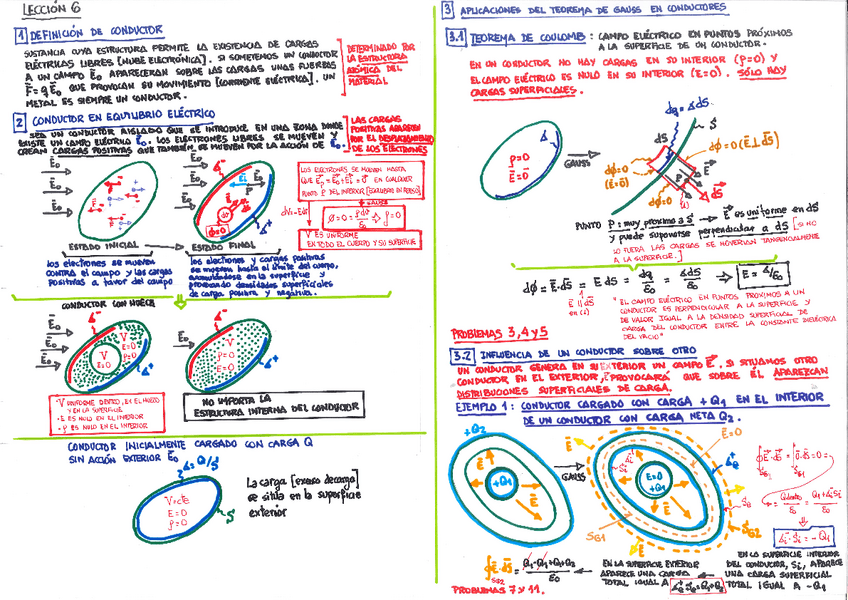 LECCIÓN 6
1 DEFINICIÓN DE CONDUCTOR
SUSTANCIA CUYA ESTRUCTURA PERMITE LA EXISTENCIA DE CARGAS
ELÉCTRICAS LIBRES [NUBE ELECTRÓNICA]. SI SOMETEMOS UN CONDUCTOR
A UN CAMPO E₀ APARECERAN SOBRE LAS CARGAS UNAS FUERZAS
F = q E₀ QUE PROVOCAN SU MOVIMIENTO [CORRIENTE ELÉCTRICA]. UN
METAL ES SIEMPRE UN CONDUCTOR.
DETERMINADO POR
LA ESTRUCTURA
ATÓMICA DEL
MATERIAL
2 CONDUCTOR EN EQUILIBRIO ELÉCTRICO
SEA UN CONDUCTOR AISLADO QUE SE INTRODUCE EN UNA ZONA DONDE
EXISTE UN CAMPO ELÉCTRICO E₀. LOS ELECTRONES LIBRES SE MUEVEN Y
CREAN CARGAS POSITIVAS QUE TAMBIÉN SE MUEVEN POR LA ACCIÓN DE E₀.
LAS CARGAS
POSITIVAS APARECEN
POR EL DESPLAZAMIENTO
DE LOS ELECTRONES
E₀
E₀
LOS ELECTRONES SE MUEVEN HASTA
QUE
EN CUALQUIER
PUNTO P DEL INTERIOR
V ES UNIFORME
EN TODO EL CUERPO Y SU SUPERFICIE
ESTADO INICIAL
ESTADO FINAL
los electrones se mueven
contra el campo y las cargas
positivas a favor del campo
los electrones y cargas positivas
se mueven hasta el límite del cuerpo,
acumulándose en la superficie y
provocando densidades superficiales
de carga positiva y negativa.
CONDUCTOR CON HUECO
E₀
V
E=0
ρ=0
V
E=0
E₀
V
ρ=0
E=0
V UNIFORME DENTRO, EN EL HUECO
Y EN LA SUPERFICIE
· E ES NULO EN EL INTERIOR
· ρ ES NULO EN EL INTERIOR
NO IMPORTA LA
ESTRUCTURA INTERNA DEL CONDUCTOR
CONDUCTOR INICIALMENTE CARGADO CON CARGA Q
SIN ACCIÓN EXTERIOR E₀
V=cte
E=0
ρ=0
S
La carga [exceso de carga]
se sitúa en la superficie
exterior
3 APLICACIONES DEL TEOREMA DE GAUSS EN CONDUCTORES
3.1 TEOREMA DE COULOMB: CAMPO ELÉCTRICO EN PUNTOS PRÓXIMOS
A LA SUPERFICIE DE UN CONDUCTOR.
EN UN CONDUCTOR NO HAY CARGAS EN SU INTERIOR (ρ=0) Y
EL CAMPO ELÉCTRICO ES NULO EN SU INTERIOR (E=0). SÓLO HAY
CARGAS SUPERFICIALES.
ρ=0
E=0
GAUSS
dS
dϕ=0
(E=0)
dϕ=0 (E⊥dS)
PUNTO P: muy próximo a S → E es uniforme en dS
y puede suponerse perpendicular a dS [SI NO
LO FUERA LAS CARGAS SE MOVERIAN TANGENCIALMENTE
A LA SUPERFICIE.]
"EL CAMPO ELÉCTRICO EN PUNTOS PROXIMOS A UN
CONDUCTOR ES PERPENDICULAR A LA SUPERFICIE Y
DE VALOR IGUAL A LA DENSIDAD SUPERFICIAL DE
CARGA DEL CONDUCTOR ENTRE LA CONSTANTE DIELÉCTRICA
DEL VACIO"
PROBLEMAS 3, 4 y 5
3.2 INFLUENCIA DE UN CONDUCTOR SOBRE OTRO
UN CONDUCTOR GENERA EN SU EXTERIOR UN CAMPO E. SI SITUAMOS OTRO
CONDUCTOR EN EL EXTERIOR, E PROVOCARÁ QUE SOBRE ÉL APAREZCAN
DISTRIBUCIONES SUPERFICIALES DE CARGA.
EJEMPLO 1: CONDUCTOR CARGADO CON CARGA +Q₁ EN EL INTERIOR
DE UN CONDUCTOR CON CARGA NETA Q₂.
+Q₂
+Q₁
E
GAUSS
E=0
+Q₁
E=0
EN LA SUPERFICIE EXTERIOR
APARECE UNA CARGA
TOTAL IGUAL A
EN LA SUPERFICIE INTERIOR
DEL CONDUCTOR, Si, APARECE
UNA CARGA SUPERFICIAL
TOTAL IGUAL A -Q₁
PROBLEMAS 7 y 11.